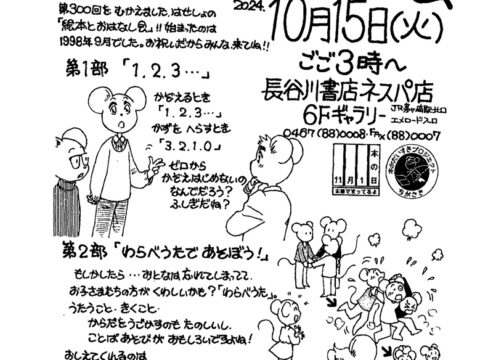 第300回を むかえました、はせしょの
「絵本とおはなし会」!! 始まったのは
1998年9月でした。お祝いだからみんな、来てね!!
2024.
10月15日(火)
ごご3時〜
長谷川書店ネスパ店
6Fギャラリー
JR茅ヶ崎駅北口
エメロード入口
0467(88)0008・Fax(88)0007
第1部 「1.2.3…」
かぞえるとき
「1.2.3…」
かずを へらすとき
「3.2.1.0」
ゼロから
かぞえはじめないの
なんでだろう?
ふしぎだね?
本の日
11月1日
本屋で待ってるよ
ちがさき
第2部 「わらべうたで あそぼう!」
もしかしたら…おとなは忘れてしまってて
お子さまたちの方が くわしいかも?「わらべうた」。
うたうこと・きくこと・
からだをうごかすのも たのしいし、
ことばあそびが おもしろいですよね!
おしえてくれるのは